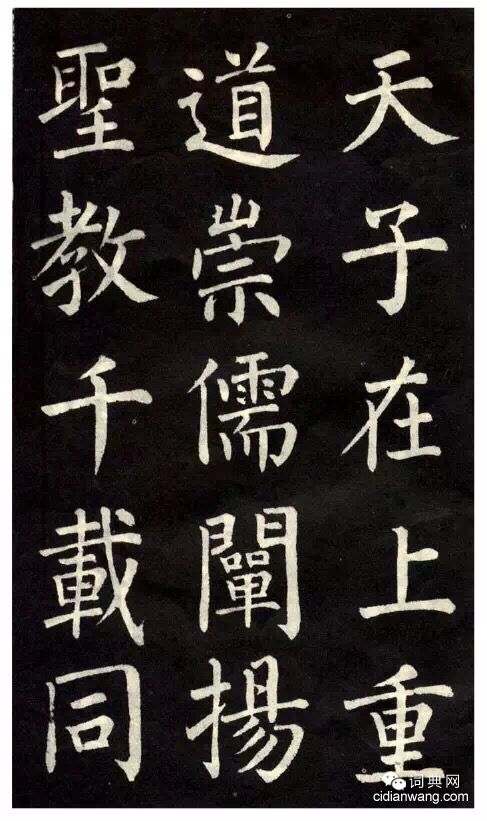 天子在上重
道崇儒闡揚
聖教千載同
词典网
cidianwang.com